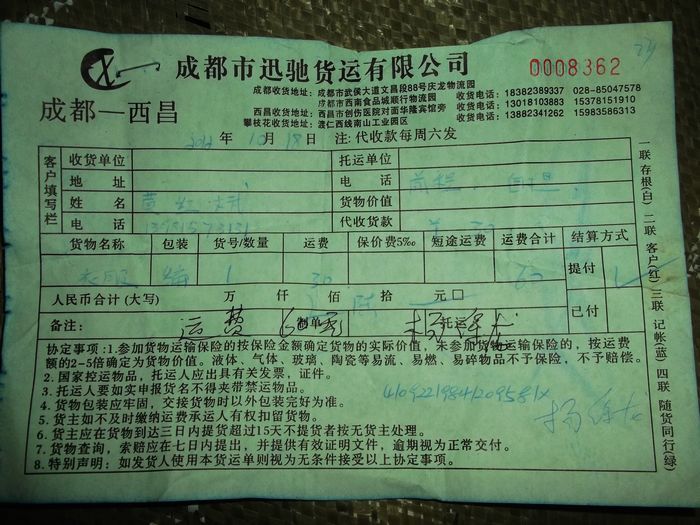 成都市迅驰货运有限公司
0008362
成都—西昌
成都收货地址：成都市武侯大道文昌段88号庆龙物流园 收货电话：18382389337 028-85047578
成都市西南食品城顺行物流园 收货电话：13018103883 15378151910
西昌收货地址：西昌市创伤医院对面华隆宾馆旁 收货电话：13882341262 15983586313
攀枝花收货地址：渡仁西线南山工业园区
年10月18日 注：代收款每周六发
客户填写栏
收货单位 托运单位
地址 电话 自提
姓名 货物价值
电话 代收货款
货物名称 包装 货号/数量 运费 保价费5‰ 短途运费 运费合计 结算方式
衣服 1 提付
人民币合计(大写) 万 仟 佰 陆拾 元
备注： 运费 托运 已付
协定事项：1.参加货物运输保险的按保险金额确定货物的实际价值，未参加货物运输保险的，按运费
额的2-5倍确定为货物价值。液体、气体、玻璃、陶瓷等易流、易燃、易碎物品不予保险，不予赔偿。
2．国家控运物品，托运人应出具有关发票，证件。
3．托运人要如实申报货名不得夹带禁运物品。
4．货物包装应牢固，交接货物时以外包装完好为准。
5．货主如不及时缴纳运费承运人有权扣留货物。
6．货主应在货物到达三日内提货超过15天不提货者按无货主处理。
7．货物查询，索赔应在七日内提出，并提供有效证明文件，逾期视为正常交付。
8．特别声明：如发货人使用本货运单则视为无条件接受以上协定事项。
41092219841209581X
一联存根(白) 二联客户(红) 三联记帐(蓝) 四联随货同行(绿)